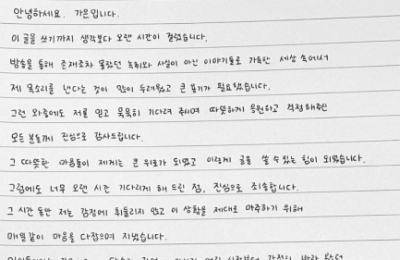 안녕하세요. 가은입니다.
이 글을 쓰기까지 생각보다 오랜 시간이 걸렸습니다.
방송을 통해 존재조차 몰랐던 녹취와 사실이 아닌 이야기들로 가득한 세상 속에서
제 목소리를 낸다는 것이 많이 두려웠고 큰 용기가 필요했습니다.
그런 와중에도 저를 믿고 묵묵히 기다려 주시며 따뜻하게 응원하고 걱정해주신
모든 분들께 진심으로 감사드립니다.
그 따뜻한 마음들이 제게는 큰 위로가 되었고 이렇게 글을 쓸 수 있는 힘이 되었습니다.
그럼에도 너무 오랜 시간 기다리게 해 드린 점, 진심으로 죄송합니다.
그 시간 동안 저는 감정에 휘둘리지 않고 이 상황을 제대로 마주하기 위해
매일같이 마음을 다잡으며 지냈습니다.